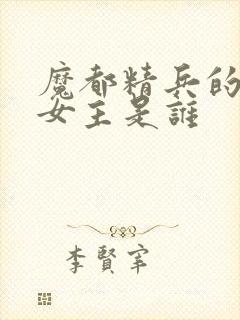 魔都精兵的
女主是誰
李賢宰